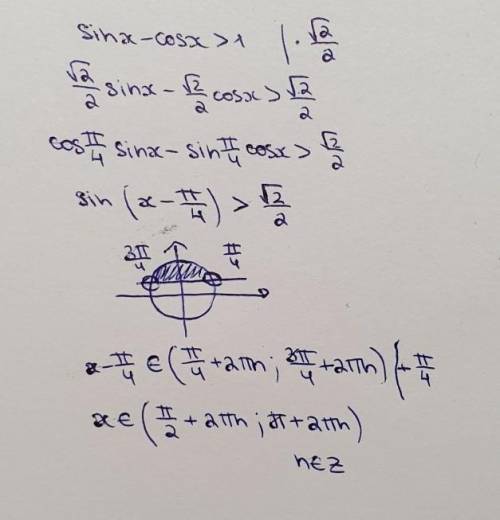 sinx-cosx>1 | · √2/2
√2/2 sinx - √2/2 cosx > √2/2
cos π/4 sinx - sin π/4 cosx > √2/2
sin (x - π/4) > √2/2
3π/4 π/4
x - π/4 ∈ (π/4 + 2πn ; 3π/4 + 2πn) | + π/4
x ∈ (π/2 + 2πn ; π + 2πn)
n∈Z